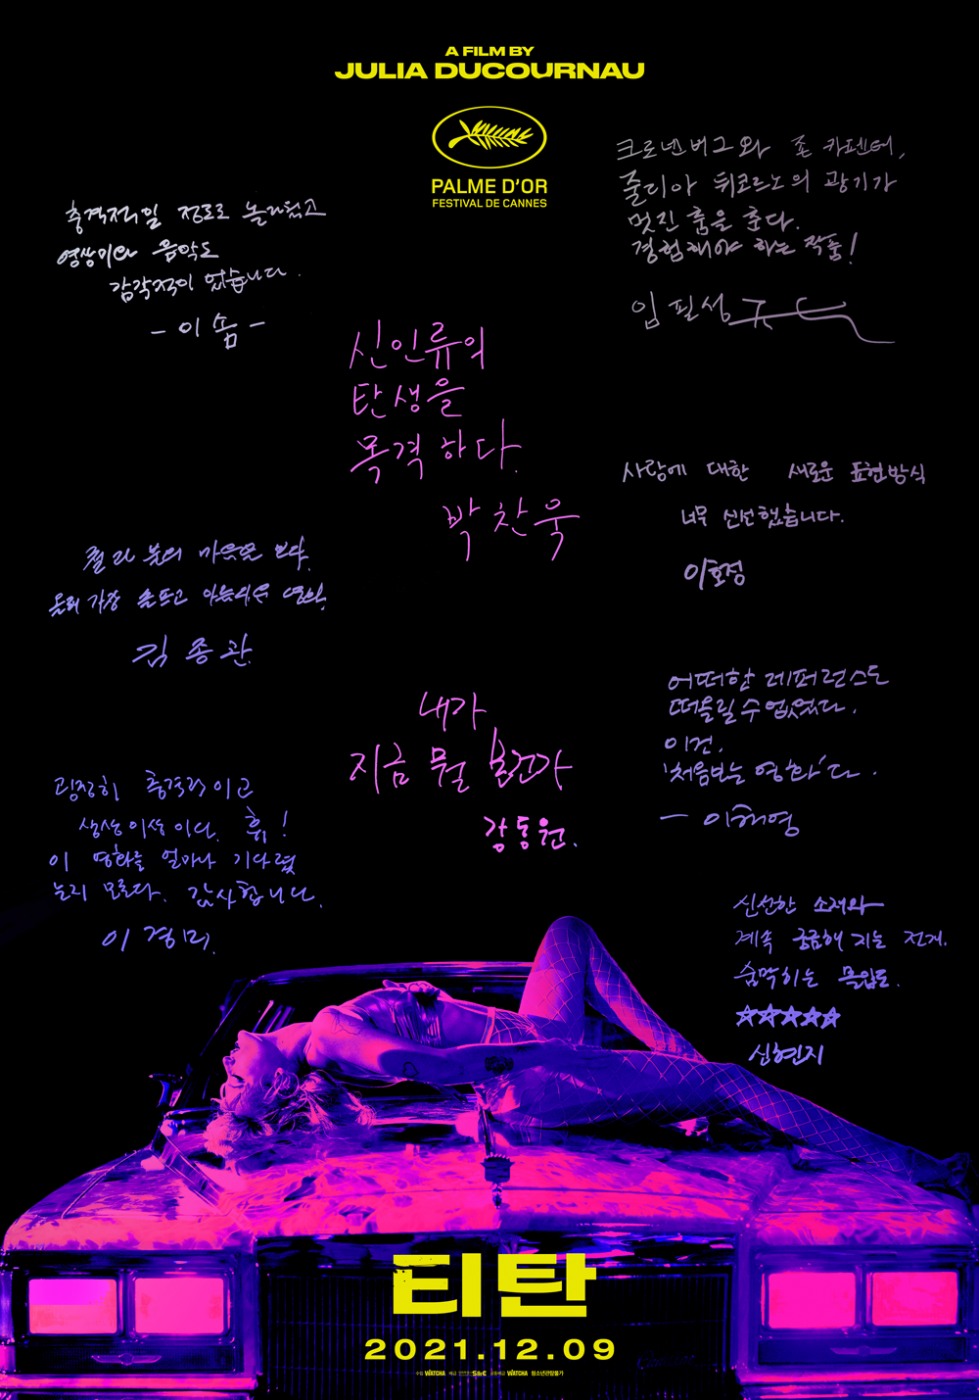 A FILM BY
JULIA DUCOURNAU
PALME D'OR
FESTIVAL DE CANNES
크로넨버그와 존 카펜터,
줄리아 뒤쿠르노의 광기가
멋진 춤을 춘다.
경험해야 하는 작품!
임필성
충격적일 정도로 놀라웠고
영상미와 음악도
감각적이었습니다.
- 이솜 -
신인류의
탄생을
목격하다.
박찬욱
사랑에 대한 새로운 표현방식
너무 신선했습니다.
이호정
보다.
올해 가장 영화.
김종관
어떠한 레퍼런스도
떠올릴 수 없었다.
이건,
'처음보는 영화'다.
- 이해영
내가
지금 뭘 본건가
강동원.
굉장히 충격적이고
상상이상이다. 휴!
이 영화를 얼마나 기다렸
는지 모른다. 감사합니다.
이경미.
신선한 소재와
계속 궁금해지는 전개.
숨막히는 몰입도.
☆☆☆☆☆
신현지
티탄
2021.12.09
수입 WATCHA 제공 S&C 공동제공 WATCHA 청소년관람불가